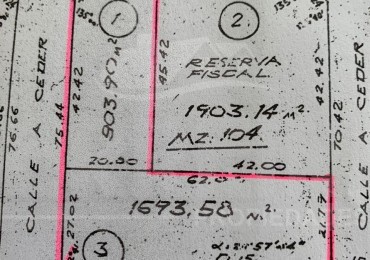 1
2
135°
RESERVA
FISCAL
1903.14 m²
MZ. 104
903.90 m²
42.42
45.42
42.42
75.44
76.66
70.42
CALLE A CEDER
CALLE A CEDER
20.90
42.00
62.
1693.58 m²
27.02
21.79
3